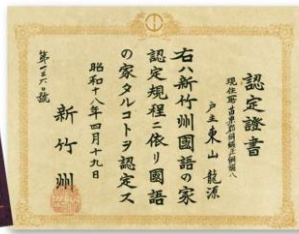 認定證書
戸主 東山龍源
右ハ新竹州國語の家
認定規程ニ依リ國語
の家タルコトヲ認定ス
昭和十八年四月十九日
新竹州